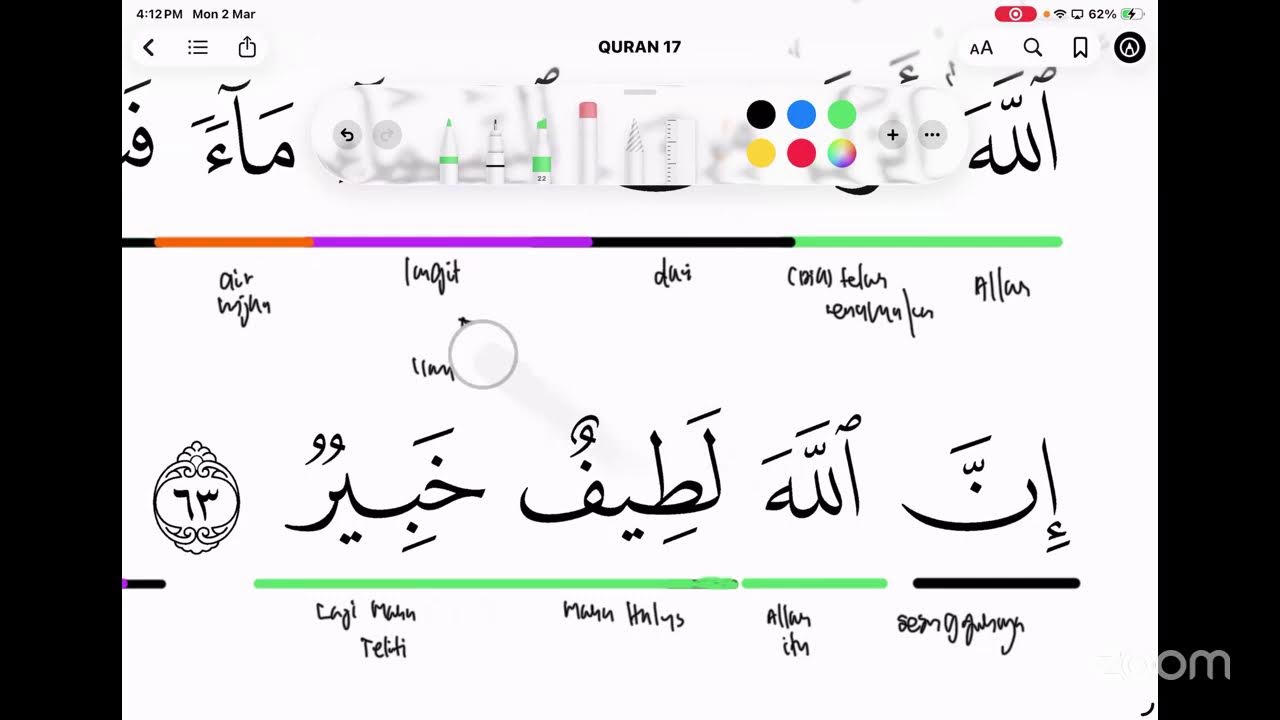 4:12 PM Mon 2 Mar 62%
QURAN 17
AA
ٱللَّهَ مَآءً
22
Allah dari langit air
إِنَّ ٱللَّهَ لَطِيفٌ خَبِيرٌ ٦٣
sesungguhnya Allah itu Maha Halus Lagi Maha Teliti
zoom